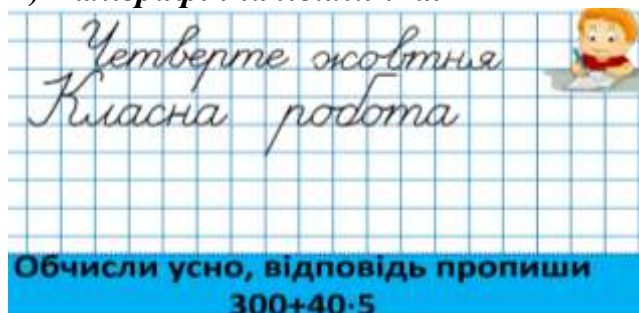 Четверте жовтня
Класна робота
Обчисли усно, відповідь пропиши
300+40·5